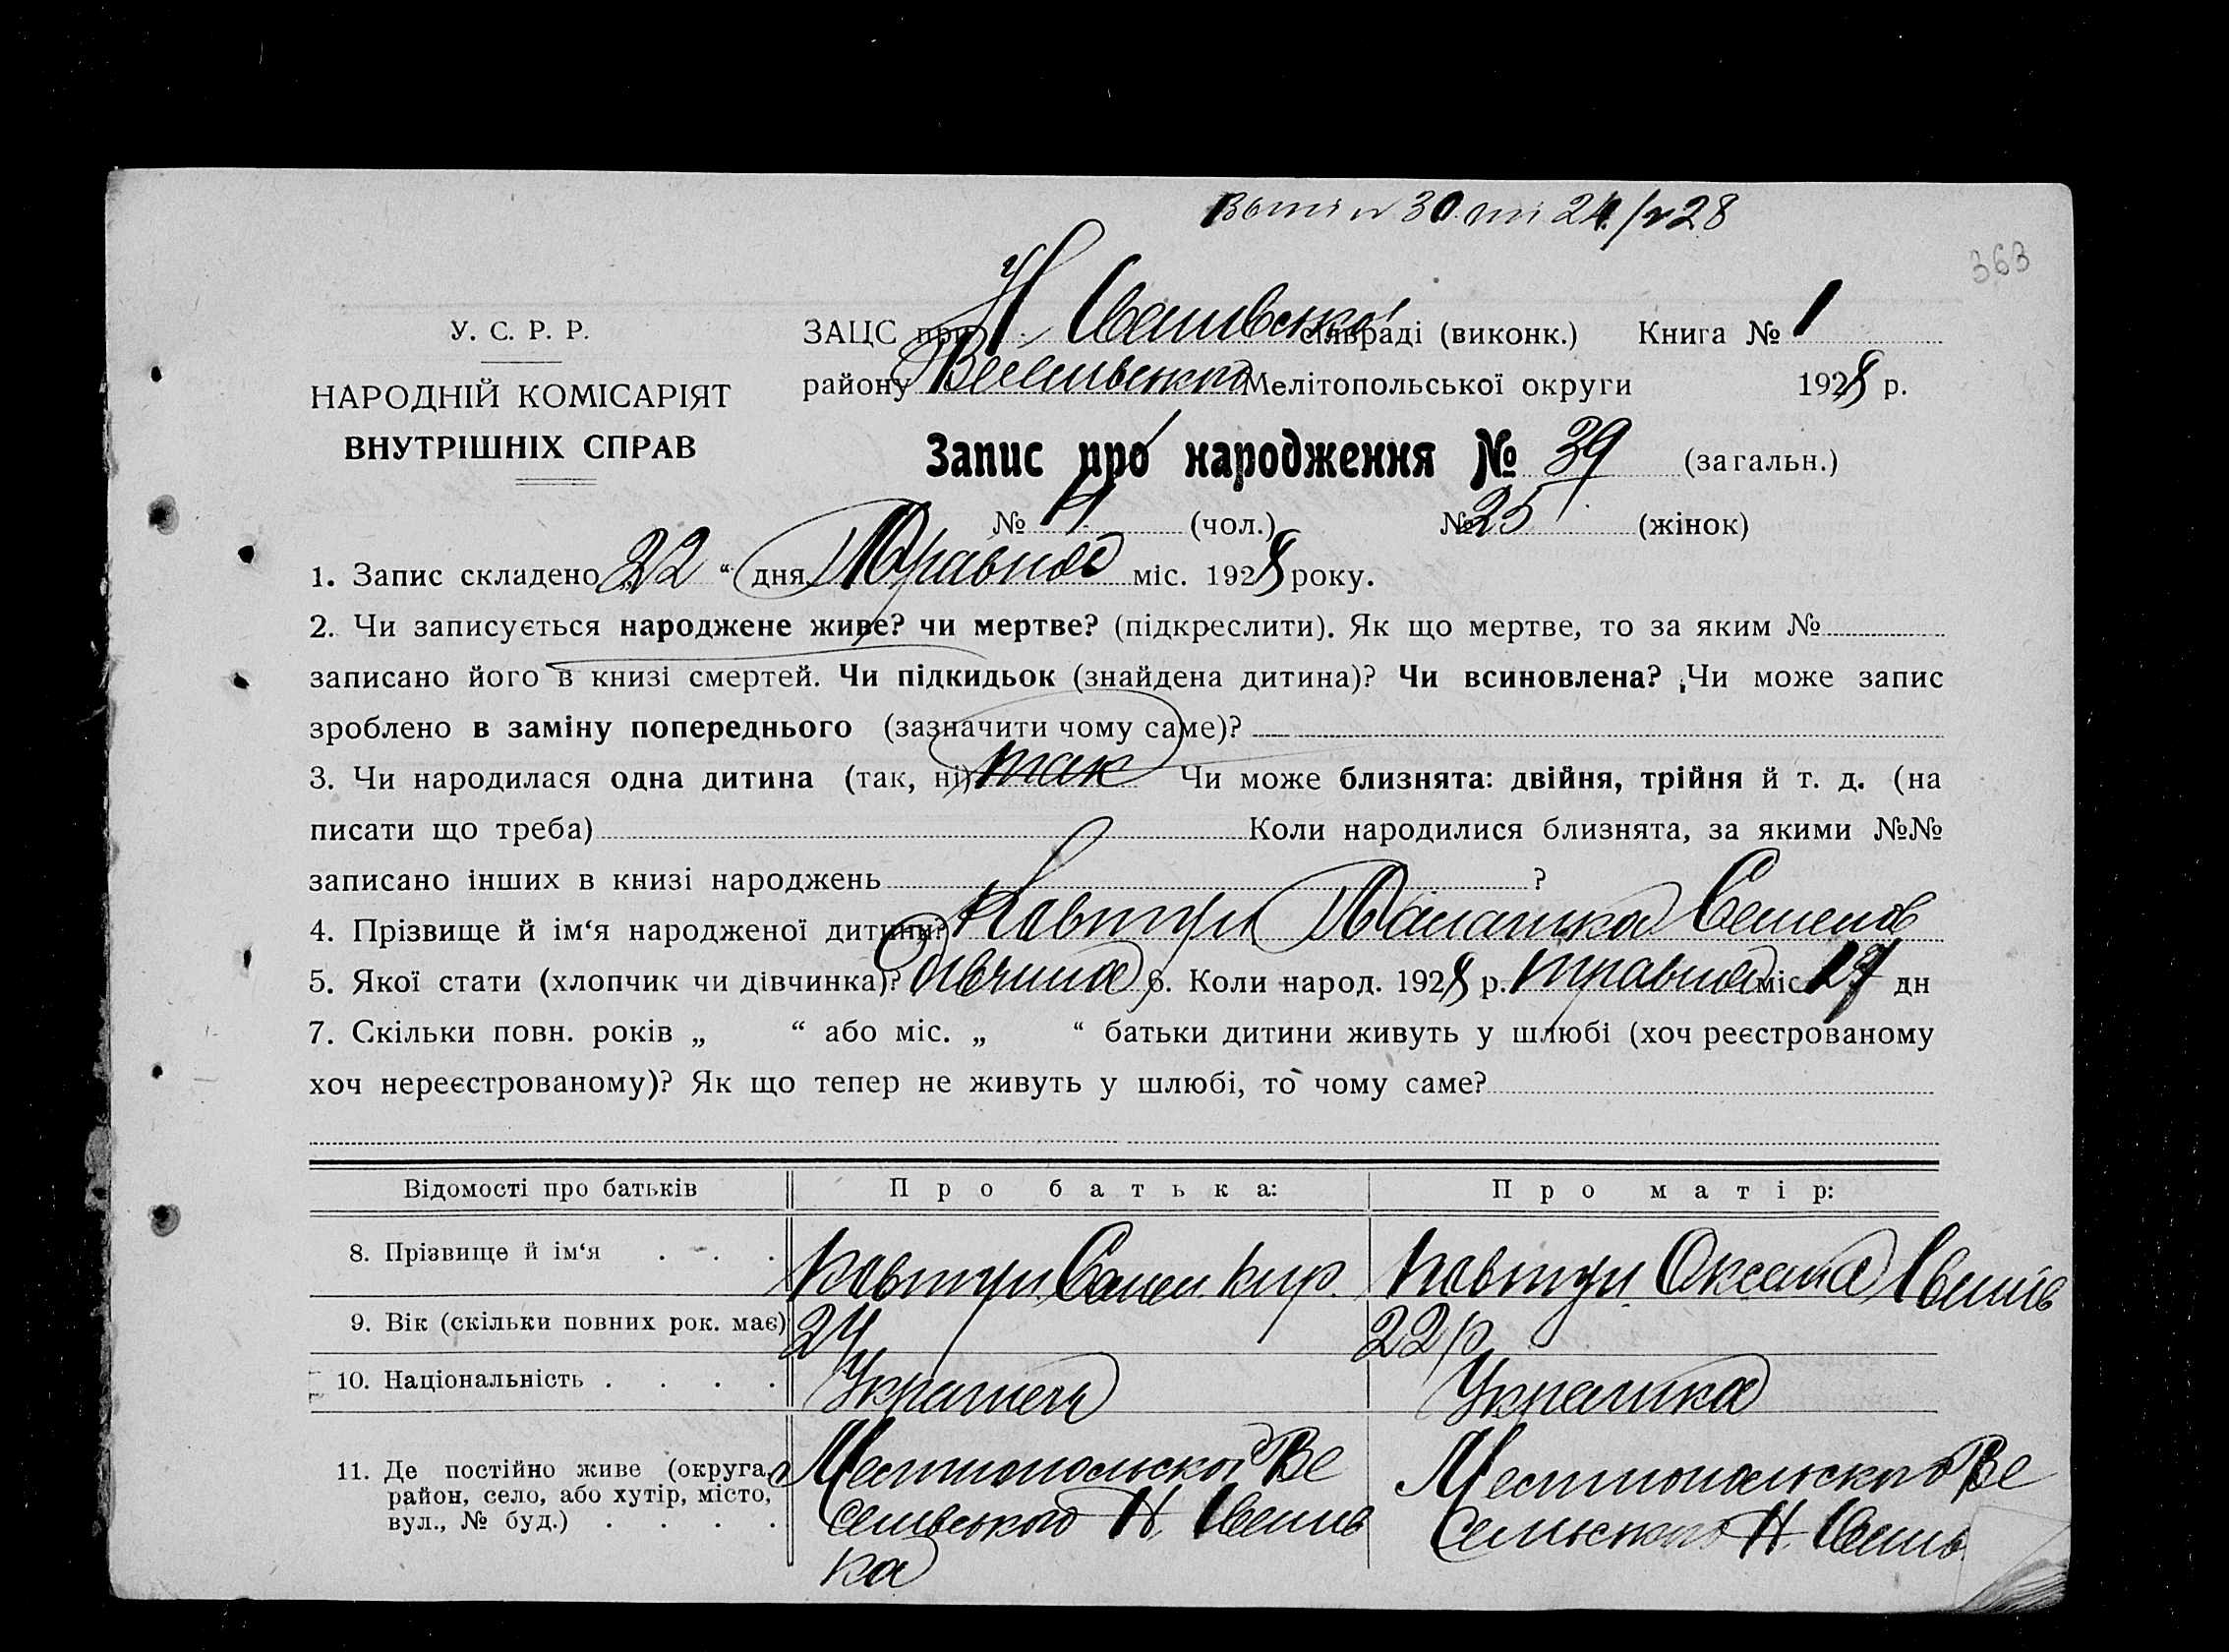 363
У. С. Р. Р.
НАРОДНІЙ КОМІСАРІЯТ
ВНУТРІШНІХ СПРАВ
ЗАЦС при Н сільраді (виконк.) Книга № 1
району Мелітопольської округи 1928 р.
Запис про народження № 39 (загальн.)
№ (чол.) № 25 (жінок)
1. Запис складено „22“ дня Травня міс. 1928 року.
2. Чи записується народжене живе? чи мертве? (підкреслити). Як що мертве, то за яким №
записано його в книзі смертей. Чи підкидьок (знайдена дитина)? Чи всиновлена? Чи може запис
зроблено в заміну попереднього (зазначити чому саме)?
3. Чи народилася одна дитина (так, ні) так Чи може близнята: двійня, трійня й т. д. (на
писати що треба) Коли народилися близнята, за якими №№
записано інших в книзі народжень ?
4. Прізвище й ім‘я народженої дитини? Ковтун Палашка Семенов
5. Якої стати (хлопчик чи дівчинка)? дівчина 6. Коли народ. 1928 р. травня міс. дн
7. Скільки повн. років „ “ або міс. „ “ батьки дитини живуть у шлюбі (хоч реєстрованому
хоч нереєстрованому)? Як що тепер не живуть у шлюбі, то чому саме?
Відомості про батьків Про батька: Про матір:
8. Прізвище й ім‘я . . . Ковтун Семен Кир. Ковтун Оксана
9. Вік (скільки повних рок. має) 24 22 р
10. Національність . . . . Українець Українка
11. Де постійно живе (округа, район, село, або хутір, місто, вул., № буд.) . . . .
Мелітопольської Ве
селівського Н.
ка
Ве
Н.